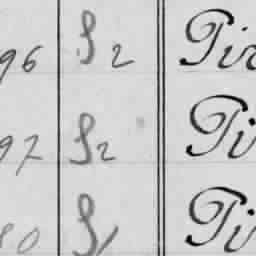 96 S2 Tir
97 S2 Ti
80 S1 Ti